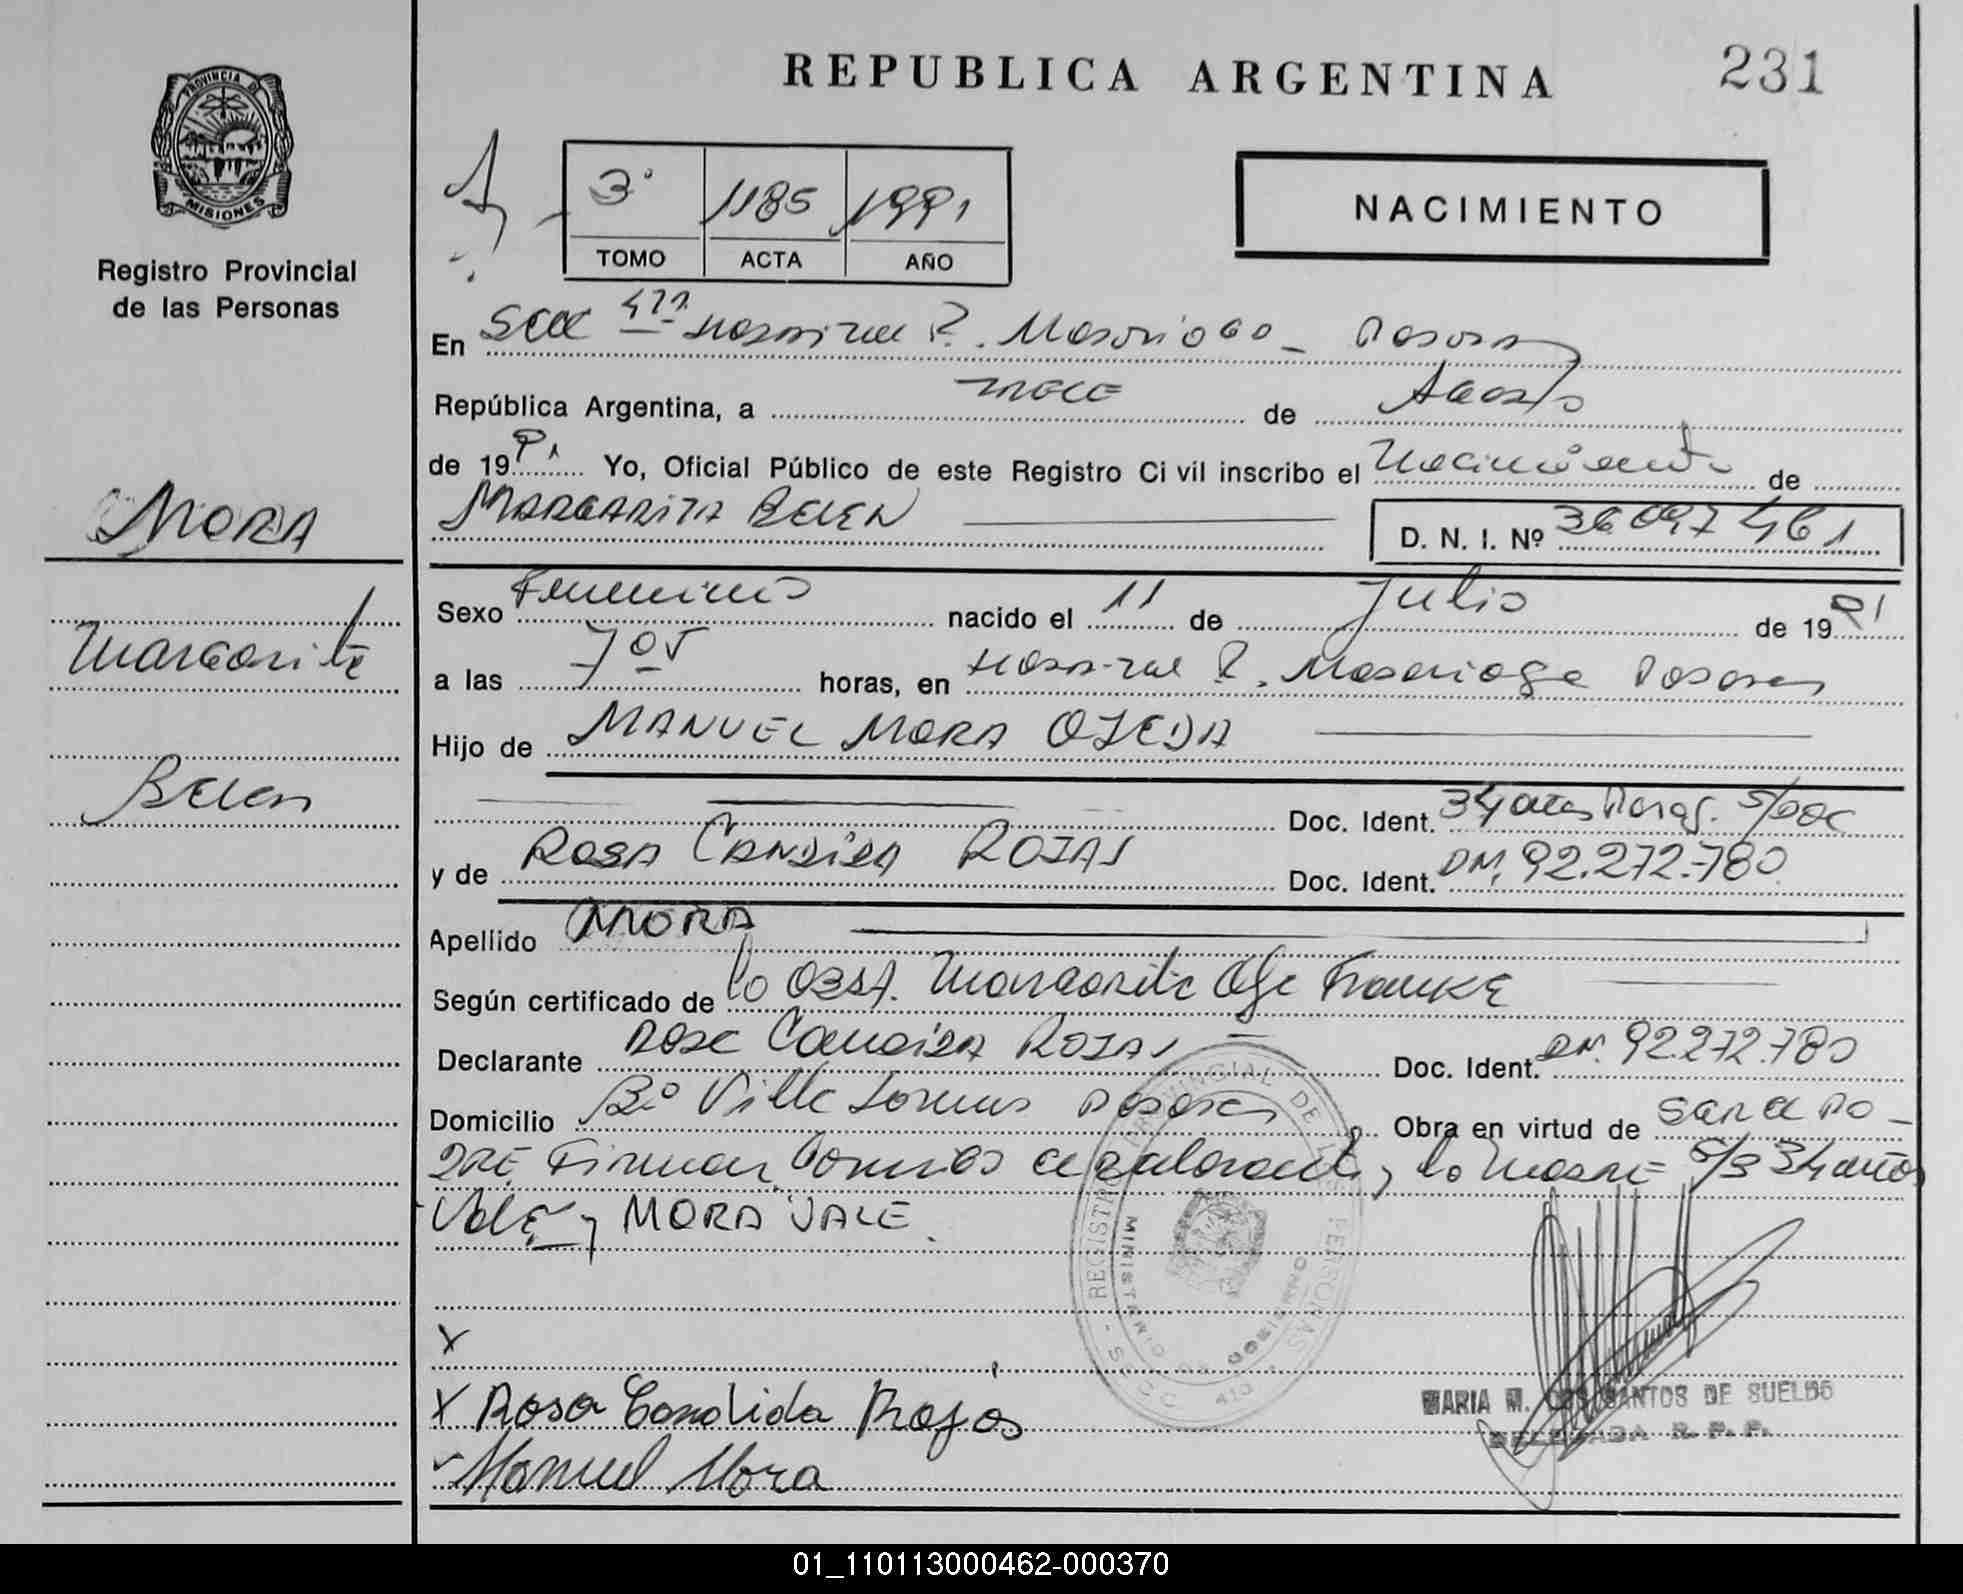 REPUBLICA ARGENTINA
231
PROVINCIA DE
MISIONES
Registro Provincial
de las Personas
3° 1185 1991
TOMO ACTA AÑO
NACIMIENTO
En Secc 4ta Hospital R. Madariaga - Posadas
República Argentina, a trece de Agosto
de 1991 Yo, Oficial Público de este Registro Ci vil inscribo el Nacimiento de
MARGARITA BELEN
D. N. I. Nº 36 097 461
MORA
Margarita
Belen
Sexo Femenino nacido el 11 de Julio de 1991
a las 7 05 horas, en Hospital R. Madariaga Posadas
Hijo de MANUEL MORA OJEDA
Doc. Ident. 34 años Parag. S/doc
y de ROSA CANDIDA ROJAS Doc. Ident. DNI. 92.272.780
Apellido MORA
Según certificado de la Obst. Margarita Franke
Declarante Rosa Candida ROJAS Doc. Ident. DNI. 92.272.780
Domicilio Bº Villa Posadas Obra en virtud de ser el pa-
dre Firman y la madre 34 años
Vale y MORA VALE
X
X Rosa Candida Rojas
Manuel Mora
REGISTRO PROVINCIAL DE LAS PERSONAS
MINISTERIO DE GOBIERNO
MARIA M. DOS SANTOS DE SUELDO
DELEGADA R. P. P.
01_110113000462-000370